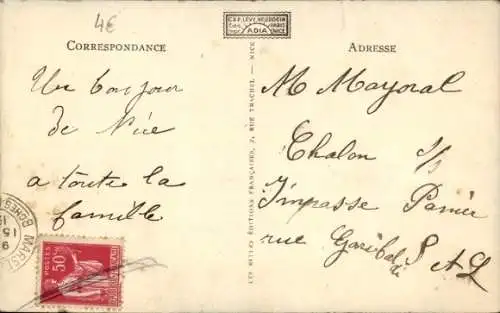 4€
C.A.P. LEVY, NEURDEIN
PARIS
ADIA
NICE
CORRESPONDANCE
ADRESSE
Un bonjour
de Nice
a toute la
famille
LES BELLES ÉDITIONS FRANÇAISES, 7, RUE TRACHEL - NICE
M Mayoral
Chalon s/s
Impasse Panier
rue Garibaldi
S et L
MARSE
15
50c
POSTES